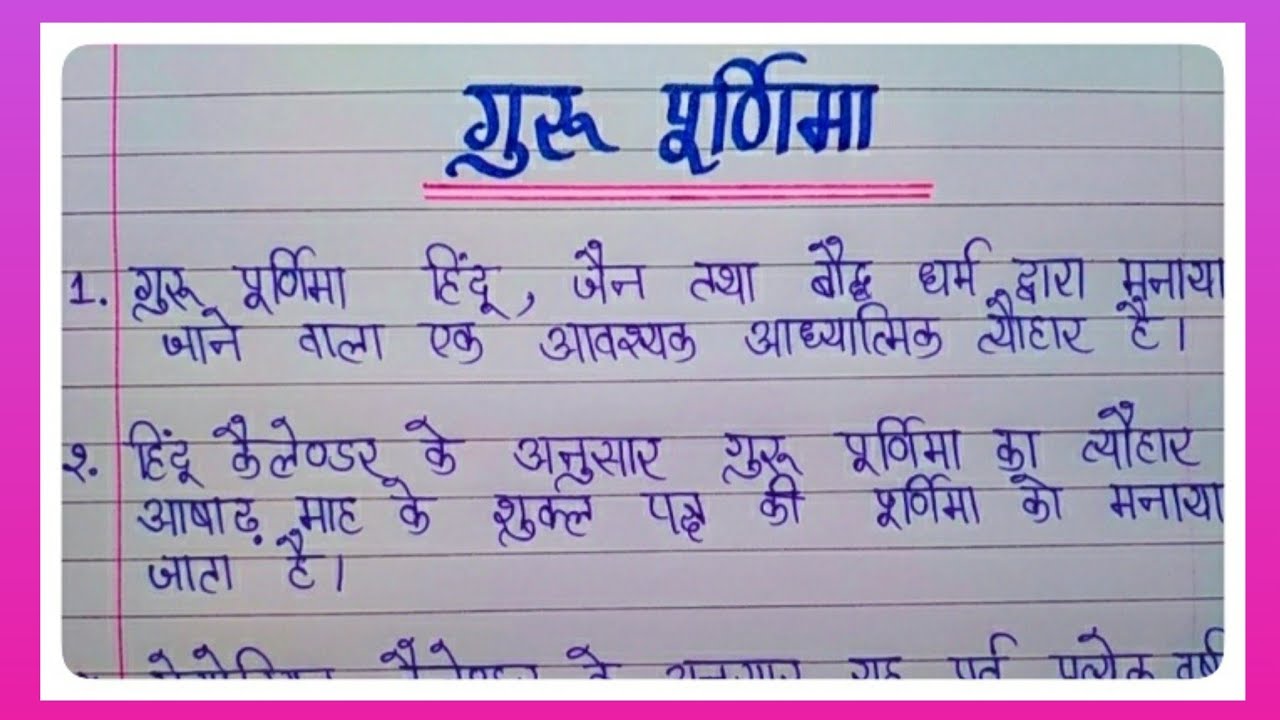 गुरू पूर्णिमा
1. गुरू पूर्णिमा हिंदू, जैन तथा बौद्ध धर्म द्वारा मनाया
जाने वाला एक आवश्यक आध्यात्मिक त्यौहार है।
२. हिंदू कैलेण्डर के अनुसार गुरू पूर्णिमा का त्यौहार
आषाढ़ माह के शुक्ल पक्ष की पूर्णिमा को मनाया
जाता है।
कैलेण्डर के अनुसार यह पर्व प्रत्येक वर्ष